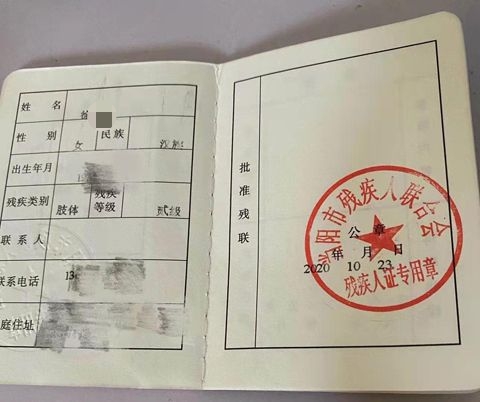 姓 名
性 别 女 民族 汉族
出生年月
残疾类别 肢体 残疾等级 贰级
联系人
联系电话 13
庭住址
批准残联
阳市残疾人联合会
公 章
年 月 日
2020 10 23
残疾人证专用章